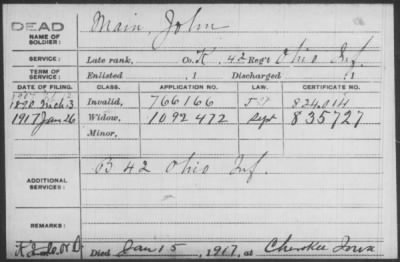 DEAD
NAME OF SOLDIER:
Main, John
SERVICE:
Late rank, Co. K, 42 Reg't Ohio Inf.
TERM OF SERVICE:
Enlisted , 1 Discharged , 1
DATE OF FILING. CLASS. APPLICATION NO. LAW. CERTIFICATE NO.
1890 Mch 3 Invalid, 766166 824014
1917 Jan 26 Widow, 1092472 Sept 835727
Minor,
ADDITIONAL SERVICES:
B 42 Ohio Inf.
REMARKS:
Died Jan 15, 1917, at Cherokee Iowa